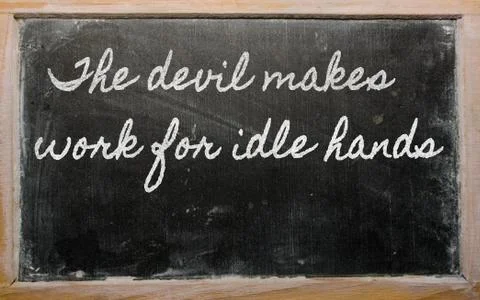 The devil makes
work for idle hands